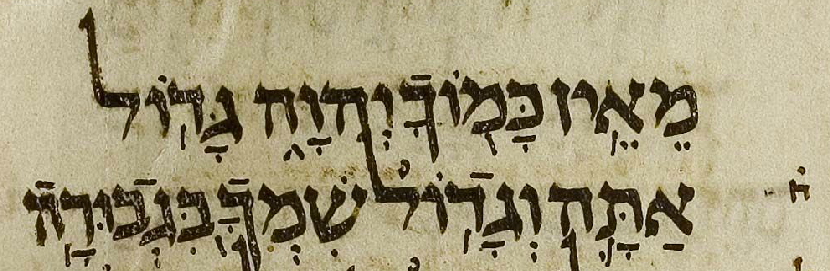 מֵאֵ֥ין כָּמ֖וֹךָ יְהוָ֑ה גָּד֥וֹל
אַתָּ֛ה וְגָד֥וֹל שִׁמְךָ֖ בִּגְבוּרָֽה